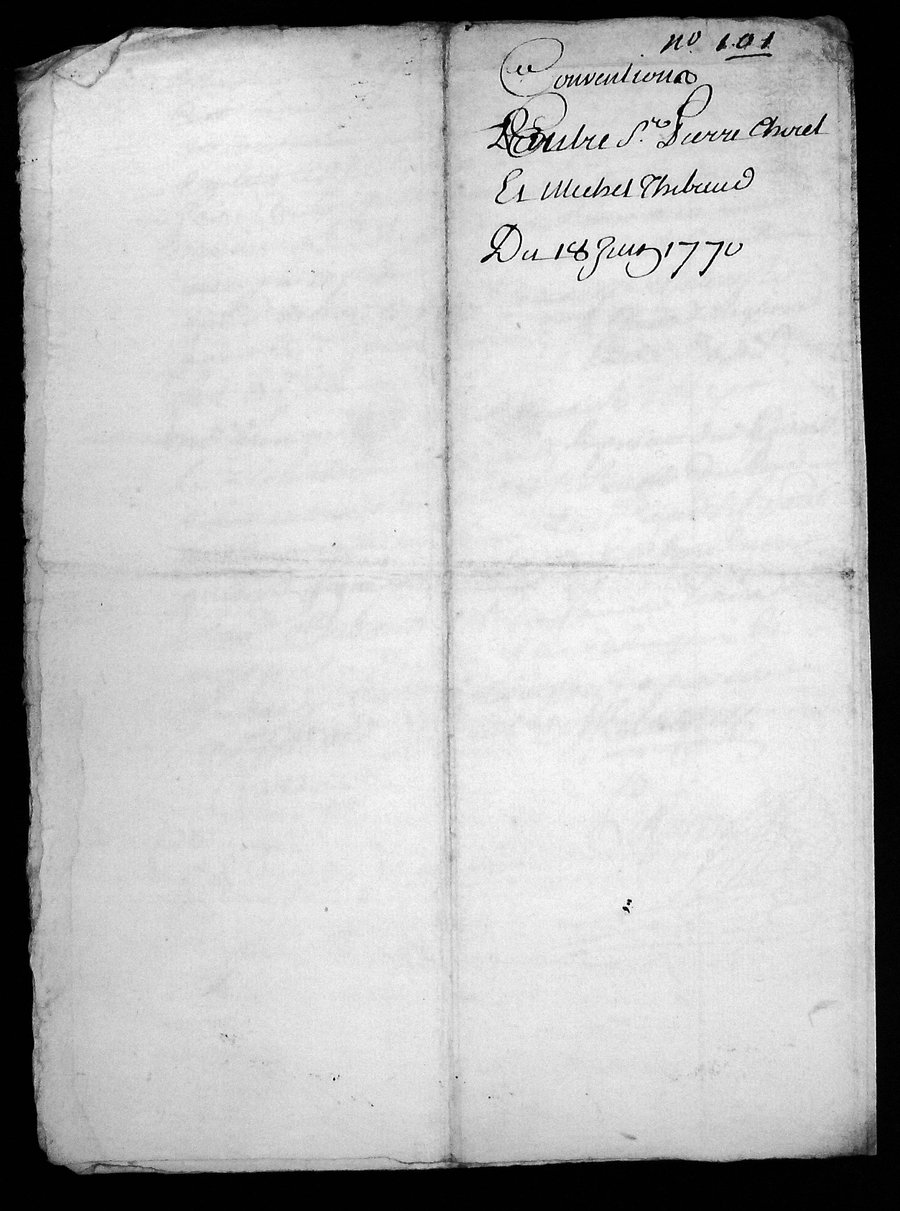 no 191
Conventions
D'Entre Sr. Pierre Choret
Et Michel Thibaud
Du 18 Juin 1770